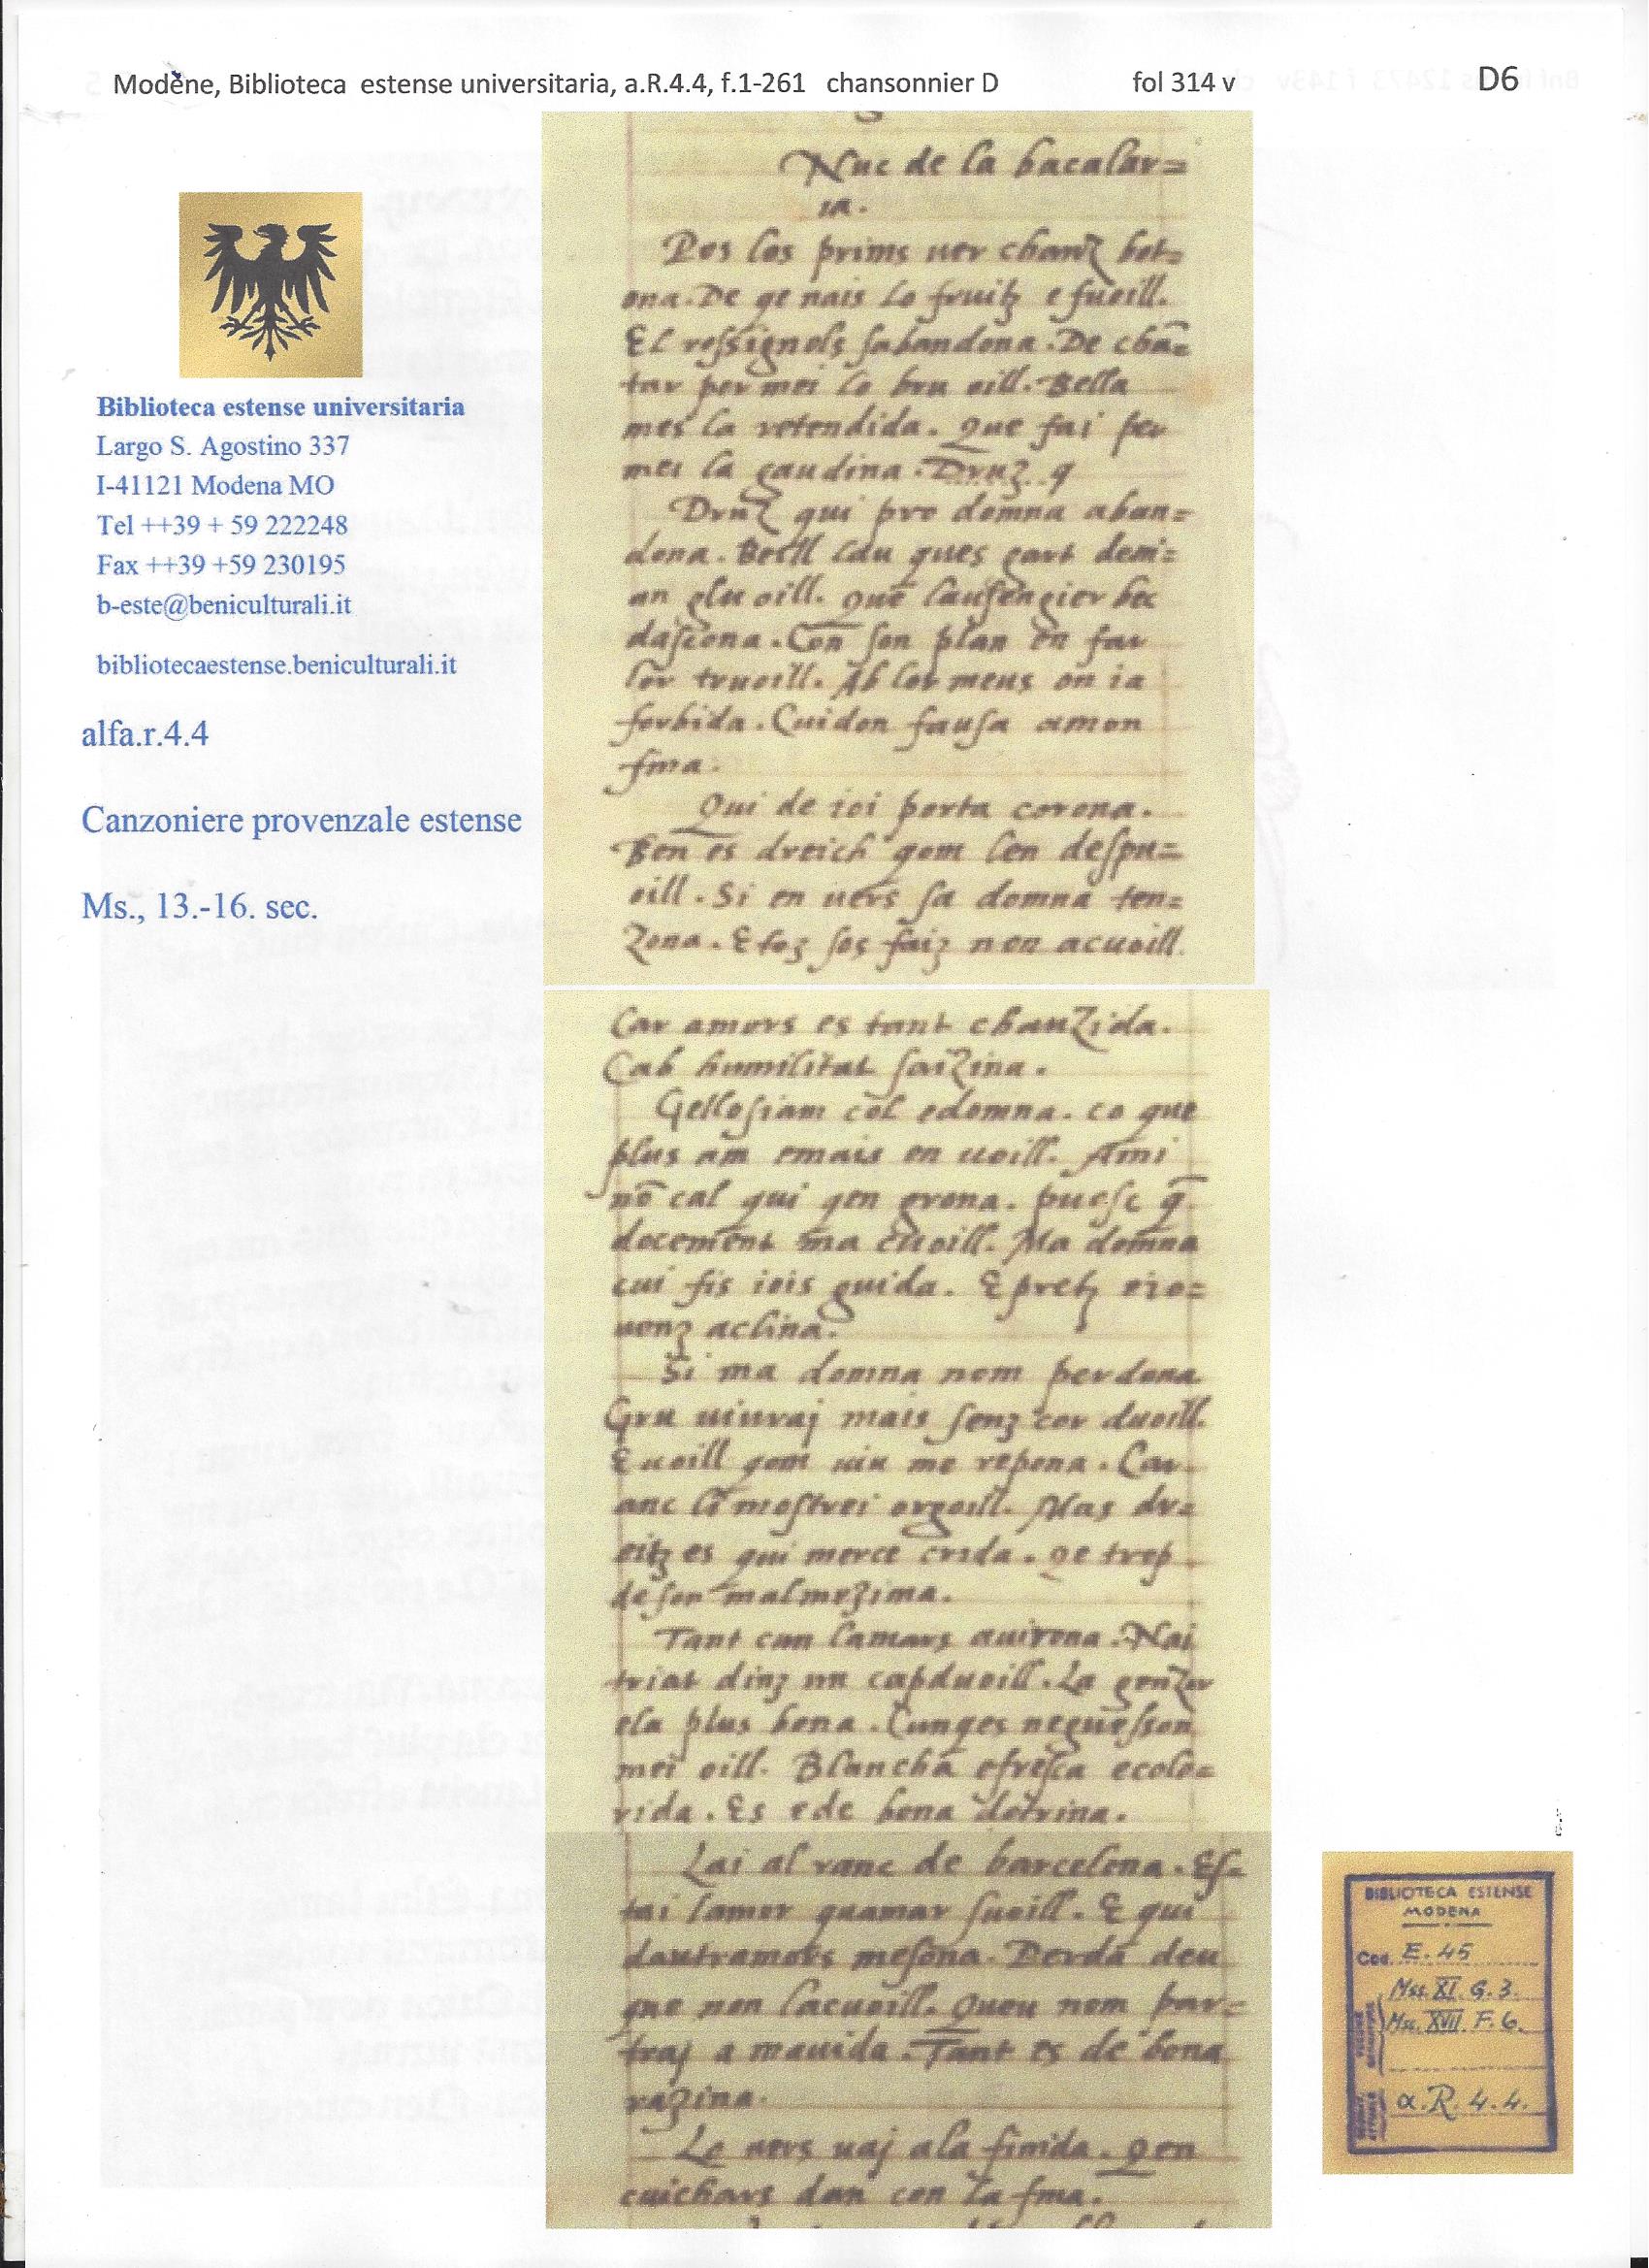 Modène, Biblioteca estense universitaria, a.R.4.4, f.1-261 chansonnier D fol 314 v D6
Biblioteca estense universitaria
Largo S. Agostino 337
I-41121 Modena MO
Tel ++39 + 59 222248
Fax ++39 +59 230195
b-este@beniculturali.it
bibliotecaestense.beniculturali.it
alfa.r.4.4
Canzoniere provenzale estense
Ms., 13.-16. sec.
Nuc de la bacalar=
ia.
Pos los prims uer chanz bot=
ona. De qe nais lo fruitz e fueill.
El rossignols sabandona. De chā=
tar per mei lo bru oill. Bella
mes la retendida. Que fai per
mei la gaudina. Druz. q
Druz qui pro domna aban=
dona. Beill lau ques gart demi=
an glu oill. que lausengier bec
dascona. Con son plan en far
lor truoill. Ab lor meus on ia
forbida. Cuidon fausa amon
fina.
Qui de ioi porta corona.
Ben es dreich qom len despu=
oill. Si en uers sa domna ten=
zona. E toz sos faiz non acuoill.
Car amors es tant chauzida.
Cab humilitat saizina.
Gellosiam col edomna. co que
plus am emais en uoill. Ami
nō cal qui qen grona. puosc q̄
docement ma cuoill. Ma domna
cui fis iois guida. E pretz eio=
uenz aclina.
Si ma domna nom perdona
Gru uiuraj mais senz cor duoill.
E uoill qom uiu me repona. Car
anc li mostrei orgoill. Mas dr=
eitz es qui merce crida. qe trop
desor malmezima.
Tant con lamars auirona. Nai
triat dinz un capduoill. La genzor
ela plus bona. Cunqes neguesson
mei oill. Blancha efresca ecolo=
rida. Es ede bona dotrina.
Lai al ranc de barcelona. Es=
tai lamor quamar suoill. E qui
dautramors mesona. Perda deu
que non lacuoill. Queu nom par=
traj a mauida. Tant es de bona
razina.
Lo uers uaj ala finida. Qen
cuichars dan con la fina.
BIBLIOTECA ESTENSE
MODENA
Cod. E. 45
Mss. XI. G. 3.
Mss. XVII. F. 6.
α. R. 4. 4.